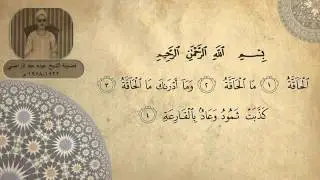 فضيلة الشيخ عبده عبد الراضي
١٩٧٨:١٩٢٢ م
بِسْمِ ٱللَّهِ ٱلرَّحْمَٰنِ ٱلرَّحِيمِ
ٱلْحَآقَّةُ ١ مَا ٱلْحَآقَّةُ ٢ وَمَآ أَدْرَىٰكَ مَا ٱلْحَآقَّةُ ٣
كَذَّبَتْ ثَمُودُ وَعَادٌۢ بِٱلْقَارِعَةِ ٤